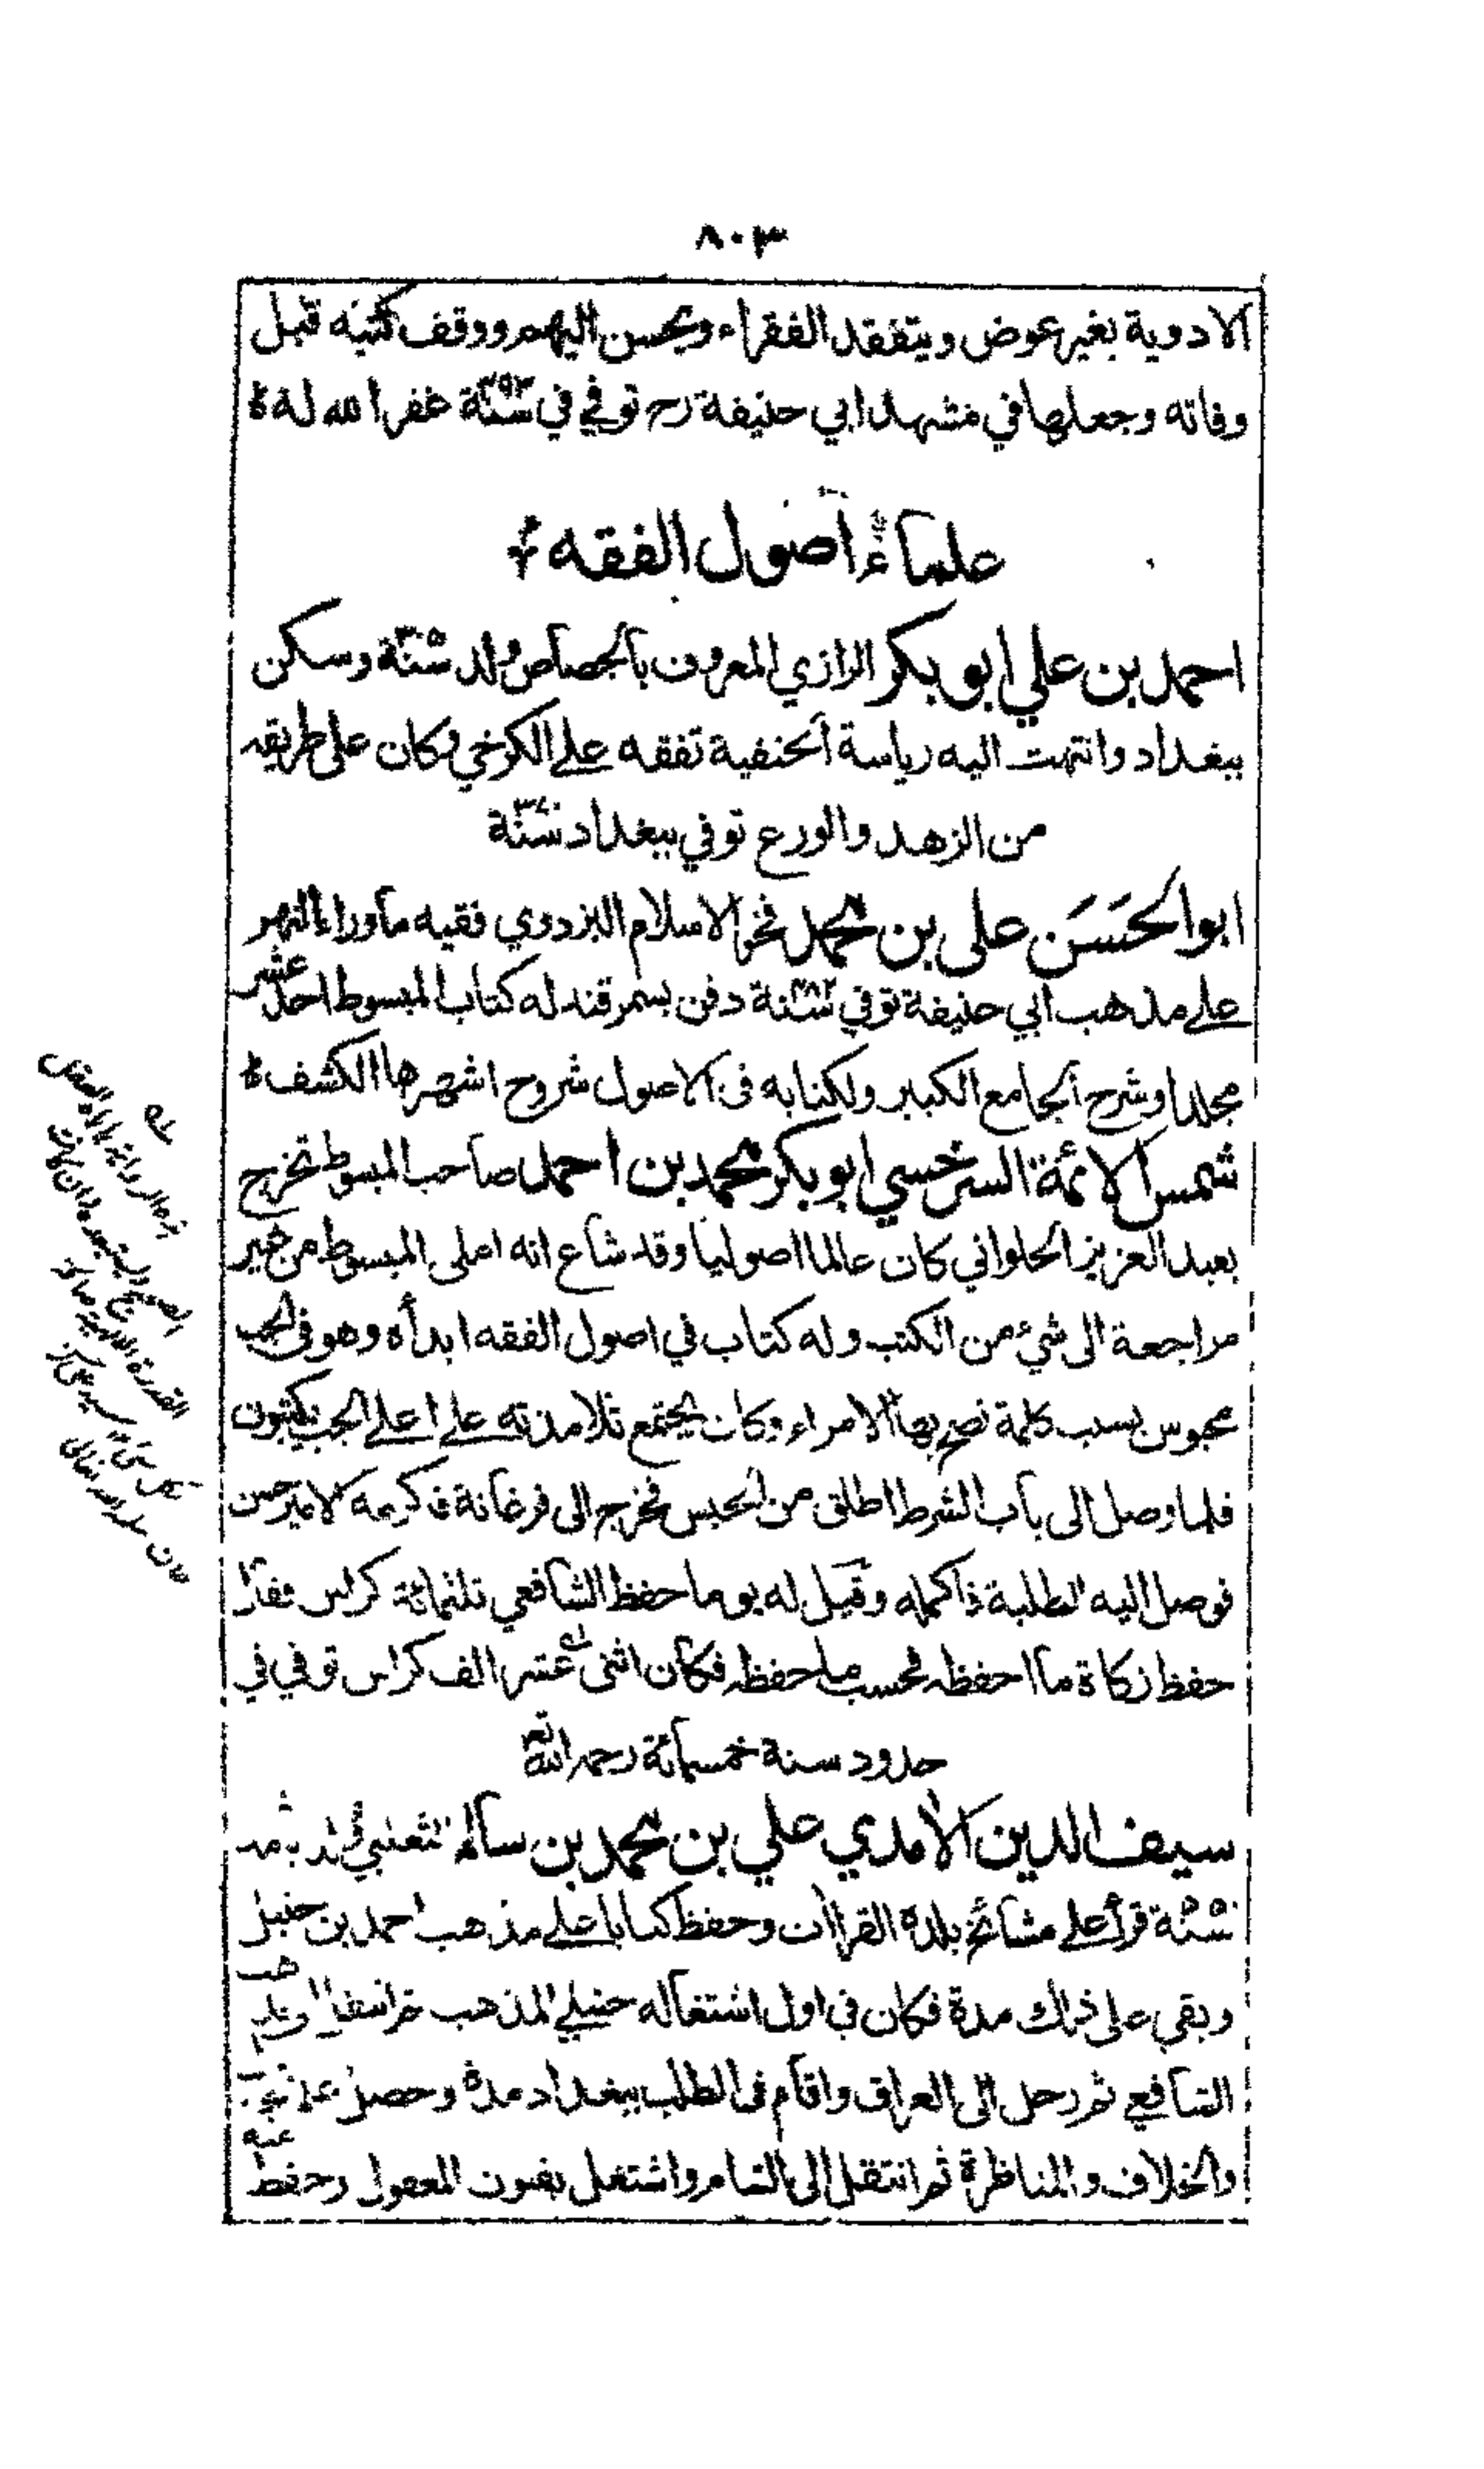 ٨٠٣
الادوية بغير عوض ويتفقد الفقراء ويحسن اليهم ووقف كتبه قبل
وفاته وجعلها في مشهد ابي حنيفة رح توفي في سنة ٣٩٣ غفر الله له
علماء اصول الفقه
احمد بن علي ابو بكر الرازي المعروف بالجصاص ولد سنة ٣٠٥ وسكن
ببغداد وانتهت اليه رياسة الحنفية تفقه على الكرخي وكان على طريقه
من الزهد والورع توفي ببغداد سنة ٣٧٠
ابو الحَسَن على بن محمد فخر الاسلام البزدوي فقيه ماوراء النهر
على مذهب ابي حنيفة توفي سنة ٤٨٢ دفن بسمرقند له كتاب المبسوط احد عشر
مجلدا وشرح الجامع الكبير ولكتابه فى الاصول شروح اشهرها الكشف
شمس الائمة السرخسي ابو بكر محمد بن احمد صاحب المبسوط تخرج
بعبد العزيز الحلواني كان عالما اصوليا وقد شاع انه املى المبسوط من غير
مراجعة الى شيء من الكتب وله كتاب في اصول الفقه ابدأه وهو فى الجب
محبوس بسبب كلمة نصح بها الامراء وكان يجتمع تلامذته على اعلى الجب يكتبون
فلما وصل الى باب الشرط اطلق من الحبس فخرج الى فرغانة فاكرمه الامير حسن
فوصل اليه الطلبة فاكمله وقيل له يوما حفظ الشافعي ثلثمائة كراس فقال
حفظ زكاة ما احفظه فحسب ما حفظه فكان اثنى عشر الف كراس توفي في
حدود سنة خمسمائة رحمه الله
سيف الدين الآمدي علي بن محمد بن سالم الثعلبي ولد بآمد
سنة ٥٥١ قرأ على مشائخ بلده القراآت وحفظ كتابا على مذهب احمد بن حنبل
وبقي على ذلك مدة فكان في اول اشتغاله حنبلي المذهب
الشافعي ثم رحل الى العراق واقام فى الطلب ببغداد مدة وحصل
والخلاف والمناظرة ثم انتقل الى الشام واشتغل بفنون المعقول وحفظ